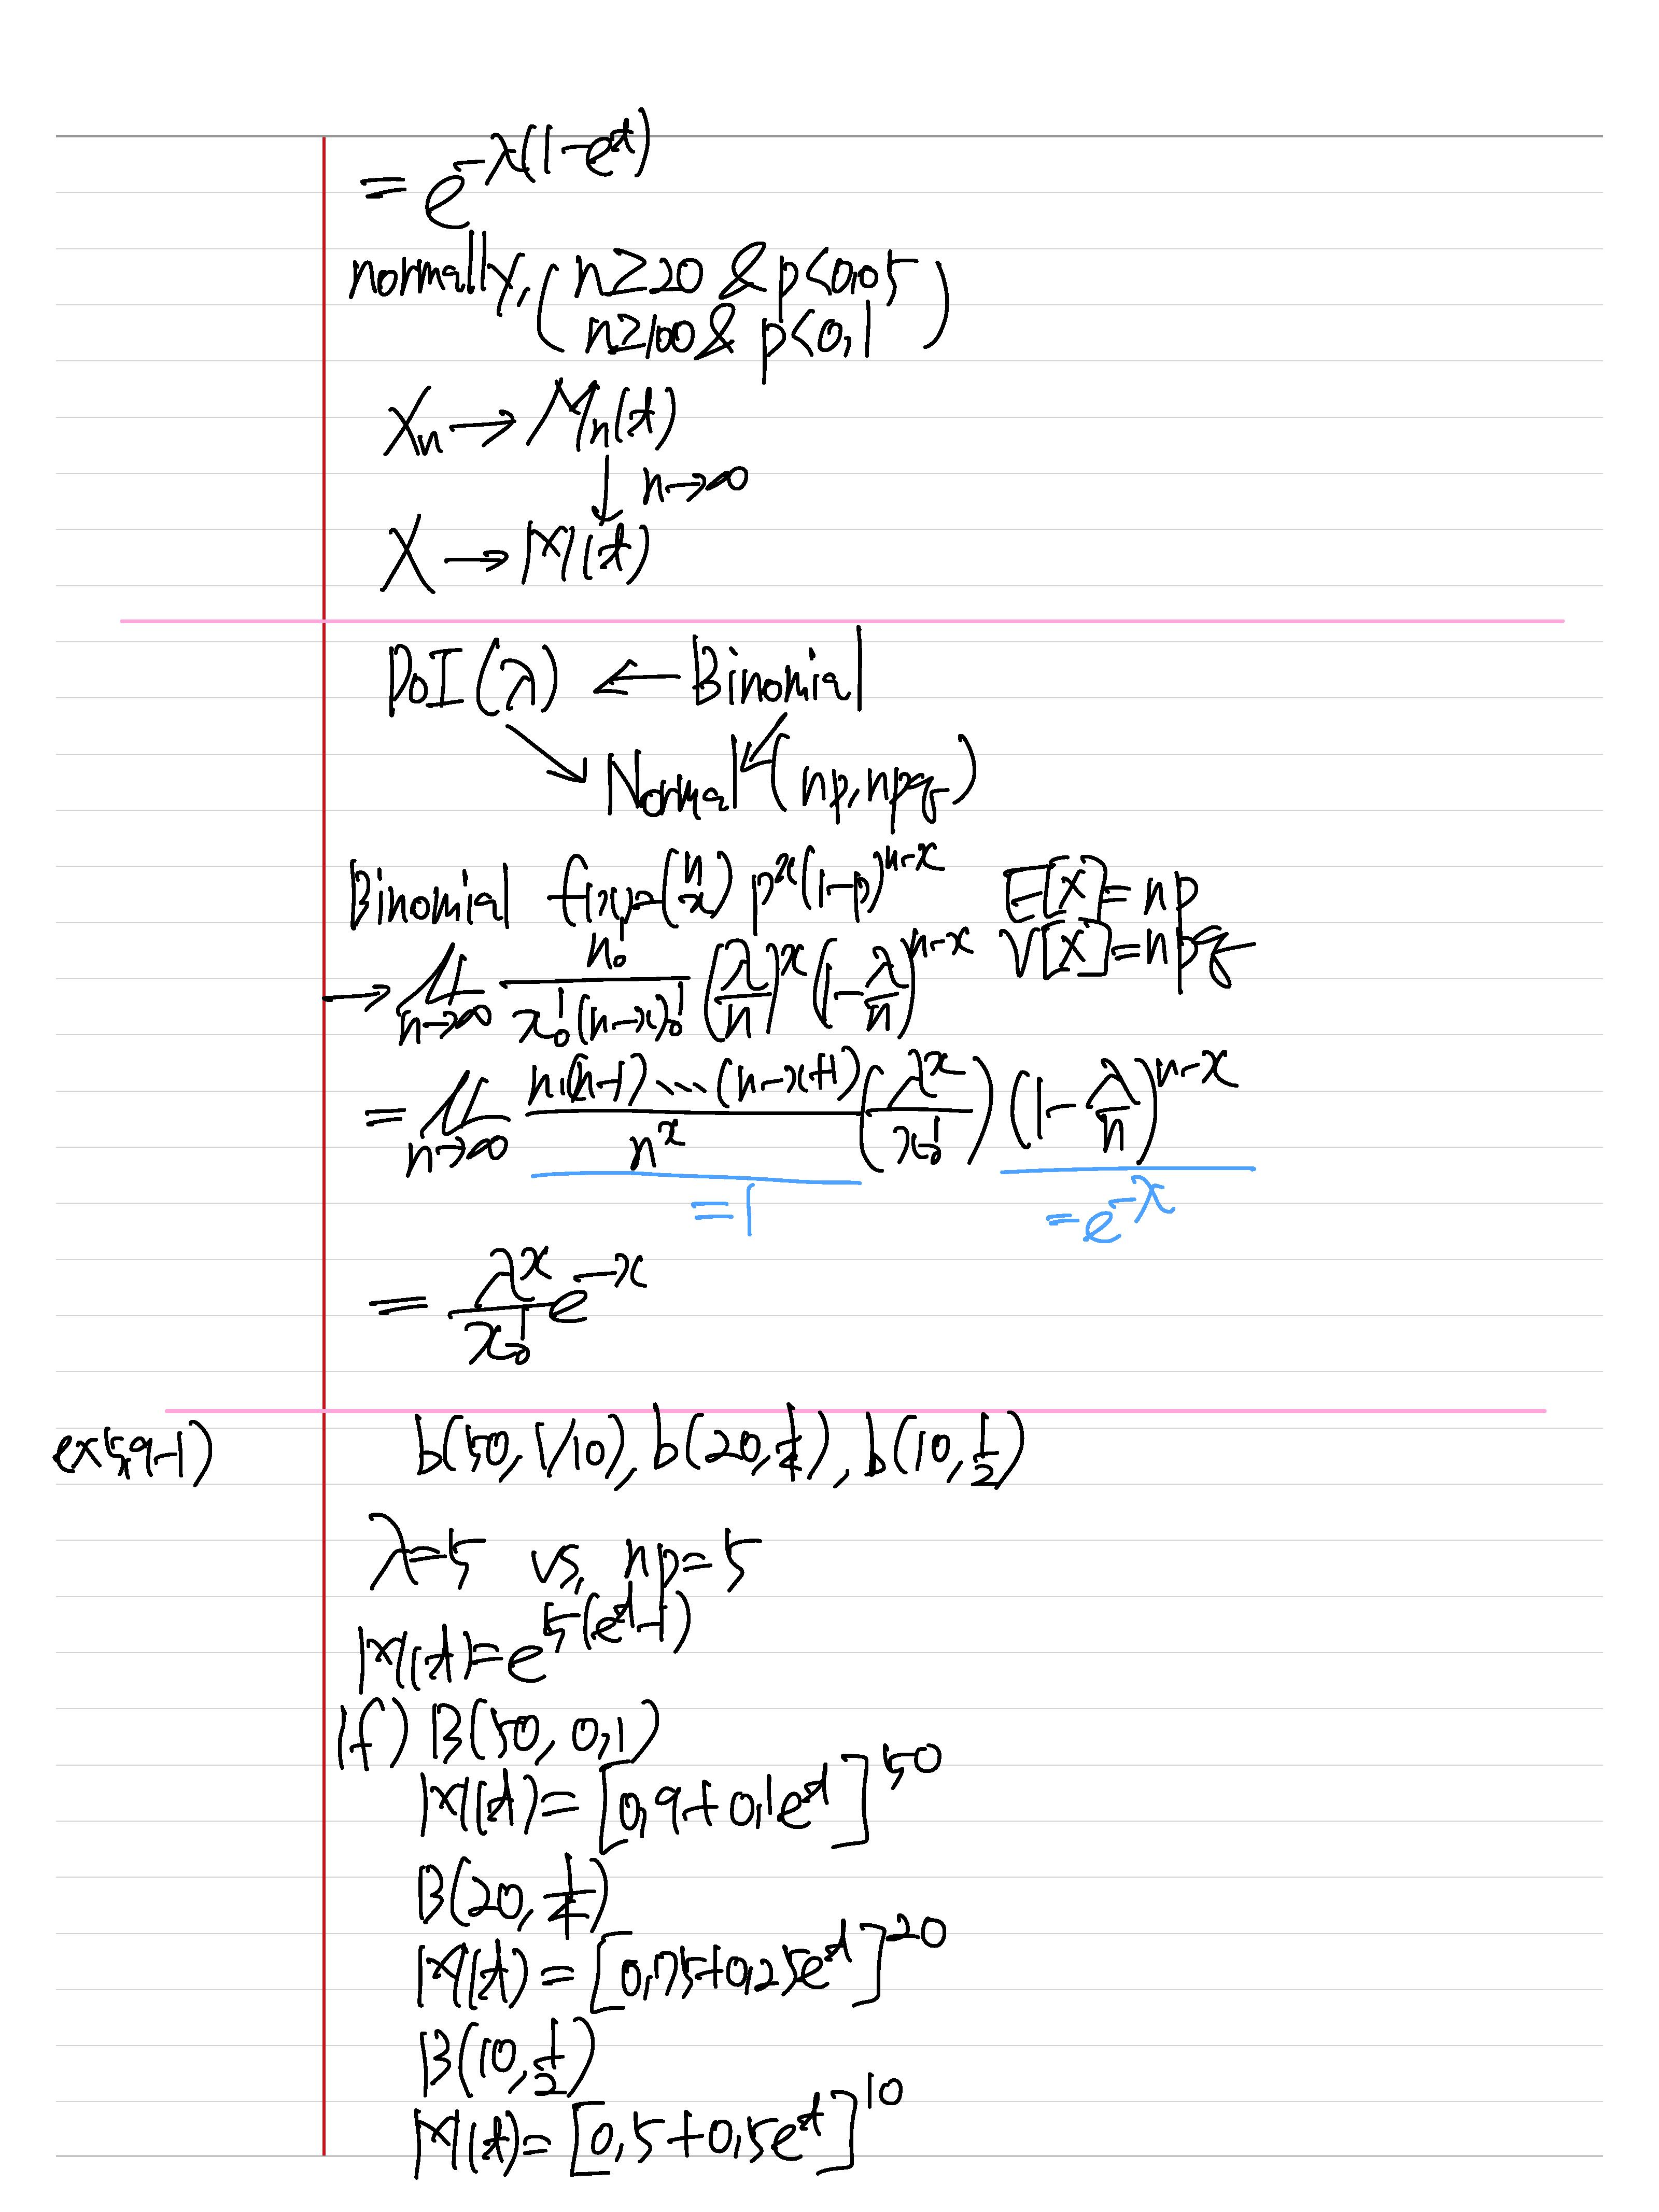 = e^{-λ(1-e^t)}
normally, ( n≥20 & p<0.05
n≥100 & p<0.1 )
X_n → M_n(t)
↓ n→∞
X → M(t)
POI(λ) ← Binomial
↘ Normal ↙ (np, npq)
Binomial f(x)=(n x) p^x(1-p)^{n-x} E[X]=np
V[X]=npq
→ lim_{n→∞} n!/(x!(n-x)!) (λ/n)^x (1-λ/n)^{n-x}
= lim_{n→∞} n·(n-1)⋯(n-x+1)/n^x (λ^x/x!) (1-λ/n)^{n-x}
=1 =e^{-λ}
= λ^x/x! e^{-x}
ex5.9-1) b(50, 1/10), b(20, 1/4), b(10, 1/2)
λ=5 vs. np=5
M(t)=e^{5(e^t-1)}
if) B(50, 0.1)
M(t)= [0.9+0.1e^t]^{50}
B(20, 1/4)
M(t)= [0.75+0.25e^t]^{20}
B(10, 1/2)
M(t)= [0.5+0.5e^t]^{10}